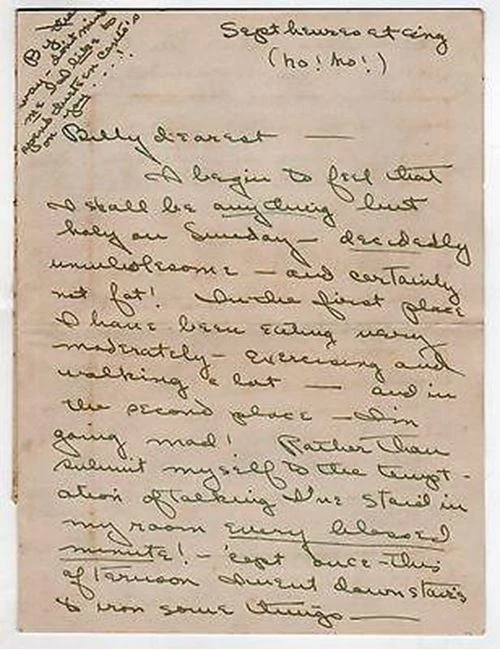 By the
way - don't mind
me I'd like to
spend
on you .....!
(Ho! Ho!)
Billy dearest —
I begin to feel that
I shall be anything but
holy on Sunday - decidedly
unwholesome - and certainly
not fat! In the first place
I have been eating very
moderately - exercising and
walking a lot — and in
the second place - I'm
going mad! Rather than
submit myself to the tempt-
ation of talking I've staid in
my room every blessed
minute! - 'cept once - this
afternoon I went downstairs
to iron some things —